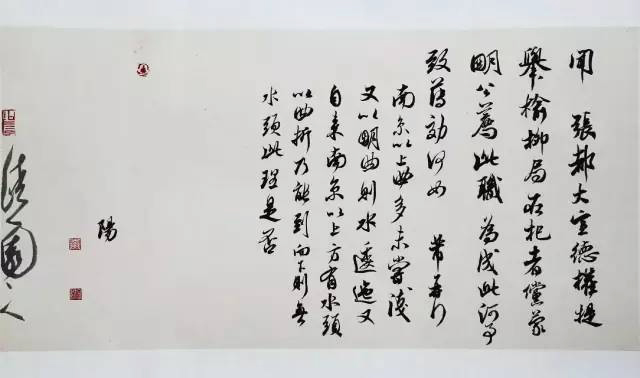 聞 張都大宣德權提
舉榆柳局在杞者儻蒙
明公薦此職為成此河事
致薄効何如 芾再行
南京以上曲多未嘗淺
又以明曲則水逶迤又
自來南京以上方有水頭
以曲折乃能到向下則無
水頭此理是否
陽